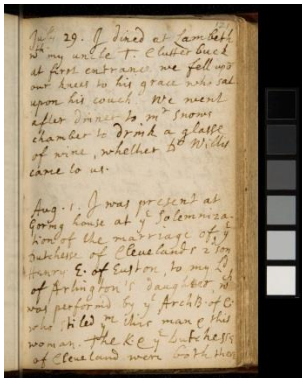 July 29. I dined at Lambeth
wth my uncle T. Clutterbuck
at first entrance we fell upo
our knees to his grace who sat
upon his couch. We went
after dinner to mr Snows
chamber to drink a glasse
of wine, whether Dr Willis
came to us.
Aug. 1. I was present at
Goring house at ye Solemniza-
tion of the marriage of ye
Dutchesse of Clevelands 2 son
Henry E. of Euston, to my Ld
of Arlington's daughter, wch
was performed by ye ArchB. of C.
who stiled ym this man & this
woman. The K & ye Dutchesse
of Cleveland were both there